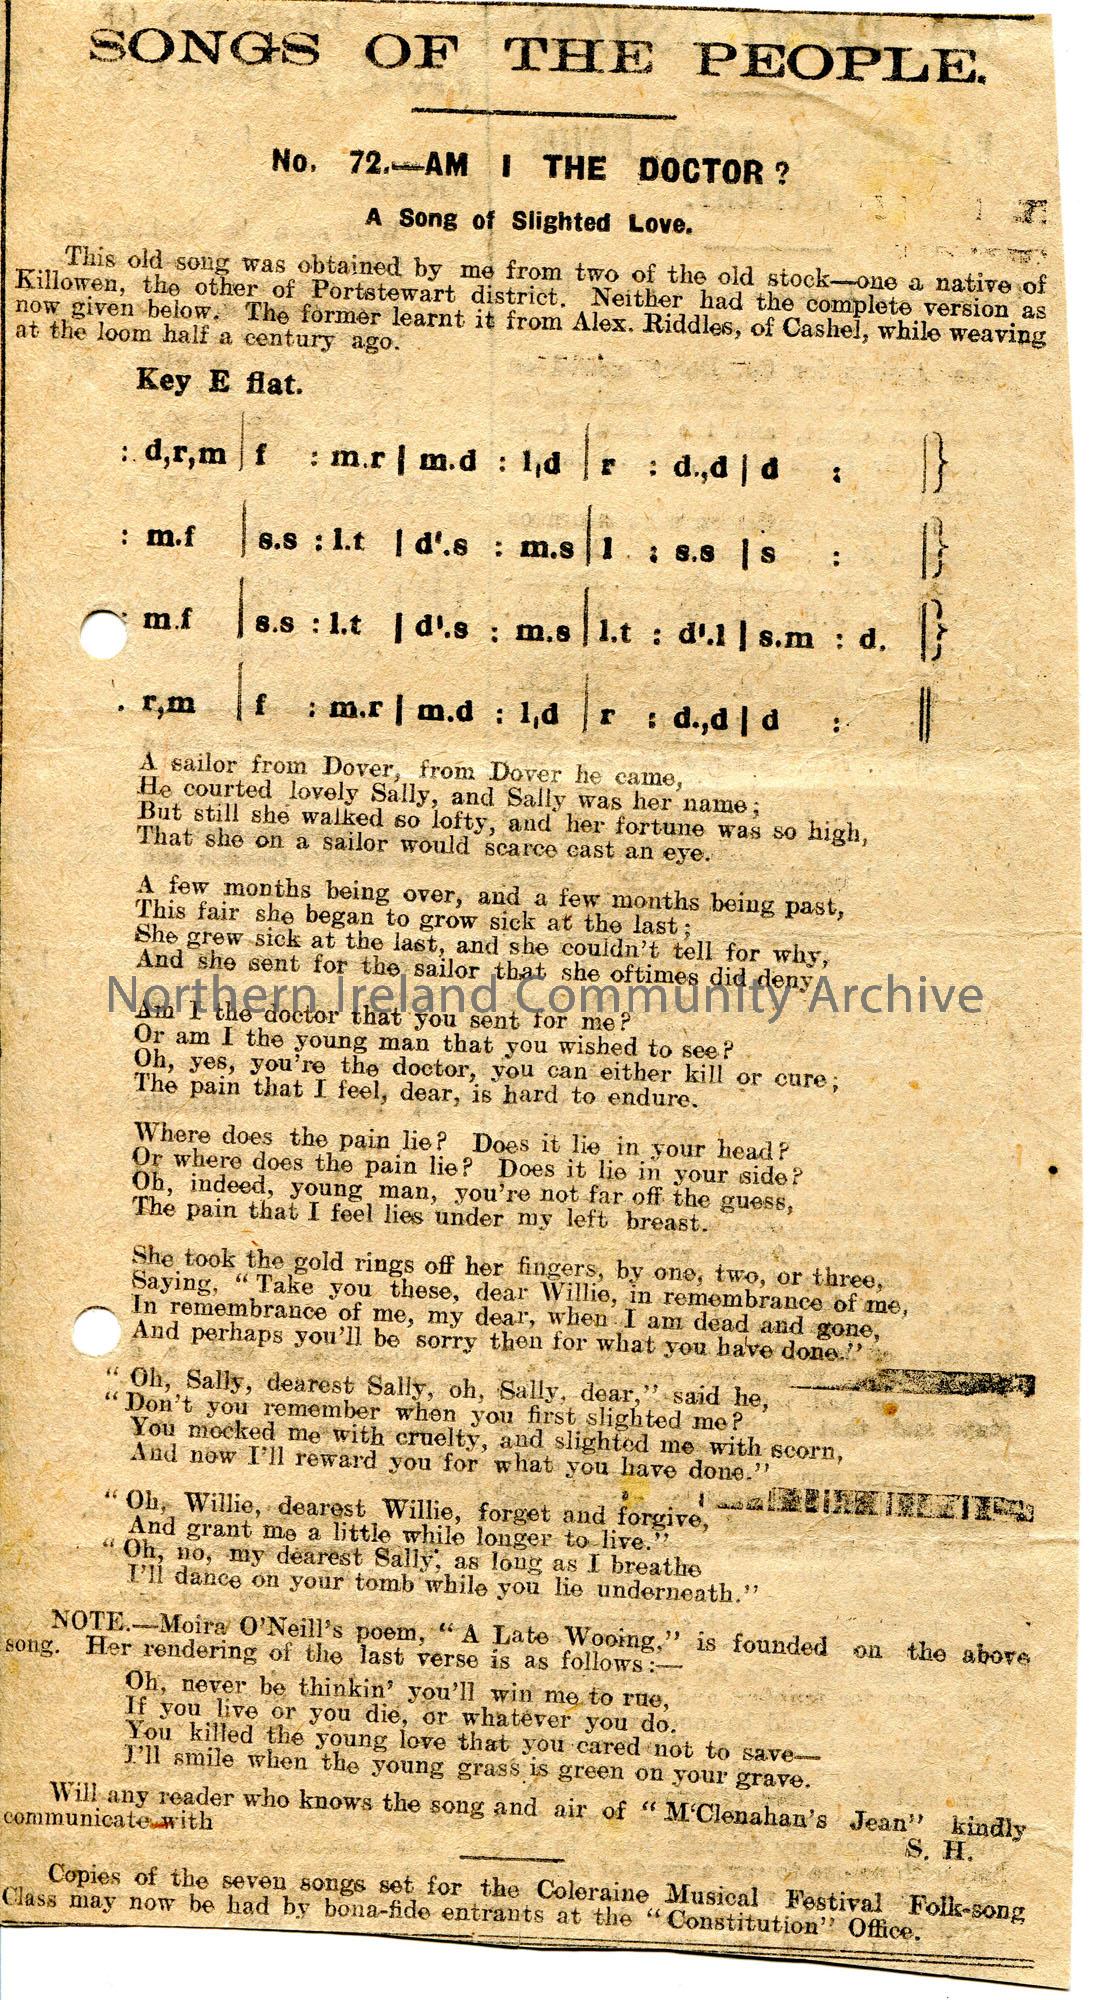 SONGS OF THE PEOPLE.
No. 72.—AM I THE DOCTOR?
A Song of Slighted Love.
This old song was obtained by me from two of the old stock—one a native of
Killowen, the other of Portstewart district. Neither had the complete version as
now given below. The former learnt it from Alex. Riddles, of Cashel, while weaving
at the loom half a century ago.
Key E flat.
: d,r,m | f : m.r | m.d : l,d | r : d.,d | d : |}
: m.f | s.s : l.t | d'.s : m.s | l : s.s | s : |}
: m.f | s.s : l.t | d'.s : m.s | l.t : d'.l | s.m : d. |}
. r,m | f : m.r | m.d : l,d | r : d.,d | d : ||
A sailor from Dover, from Dover he came,
He courted lovely Sally, and Sally was her name;
But still she walked so lofty, and her fortune was so high,
That she on a sailor would scarce cast an eye.
A few months being over, and a few months being past,
This fair she began to grow sick at the last;
She grew sick at the last, and she couldn't tell for why,
And she sent for the sailor that she oftimes did deny.
Northern Ireland Community Archive
Am I the doctor that you sent for me?
Or am I the young man that you wished to see?
Oh, yes, you're the doctor, you can either kill or cure;
The pain that I feel, dear, is hard to endure.
Where does the pain lie? Does it lie in your head?
Or where does the pain lie? Does it lie in your side?
Oh, indeed, young man, you're not far off the guess,
The pain that I feel lies under my left breast.
She took the gold rings off her fingers, by one, two, or three,
Saying, "Take you these, dear Willie, in remembrance of me,
In remembrance of me, my dear, when I am dead and gone,
And perhaps you'll be sorry then for what you have done."
"Oh, Sally, dearest Sally, oh, Sally, dear," said he,
"Don't you remember when you first slighted me?
You mocked me with cruelty, and slighted me with scorn,
And now I'll reward you for what you have done."
"Oh, Willie, dearest Willie, forget and forgive,
And grant me a little while longer to live."
"Oh, no, my dearest Sally, as long as I breathe
I'll dance on your tomb while you lie underneath."
NOTE.—Moira O'Neill's poem, "A Late Wooing," is founded on the above
song. Her rendering of the last verse is as follows:—
Oh, never be thinkin' you'll win me to rue,
If you live or you die, or whatever you do.
You killed the young love that you cared not to save—
I'll smile when the young grass is green on your grave.
Will any reader who knows the song and air of "M'Clenahan's Jean" kindly
communicate with
S. H.
Copies of the seven songs set for the Coleraine Musical Festival Folk-song
Class may now be had by bona-fide entrants at the "Constitution" Office.